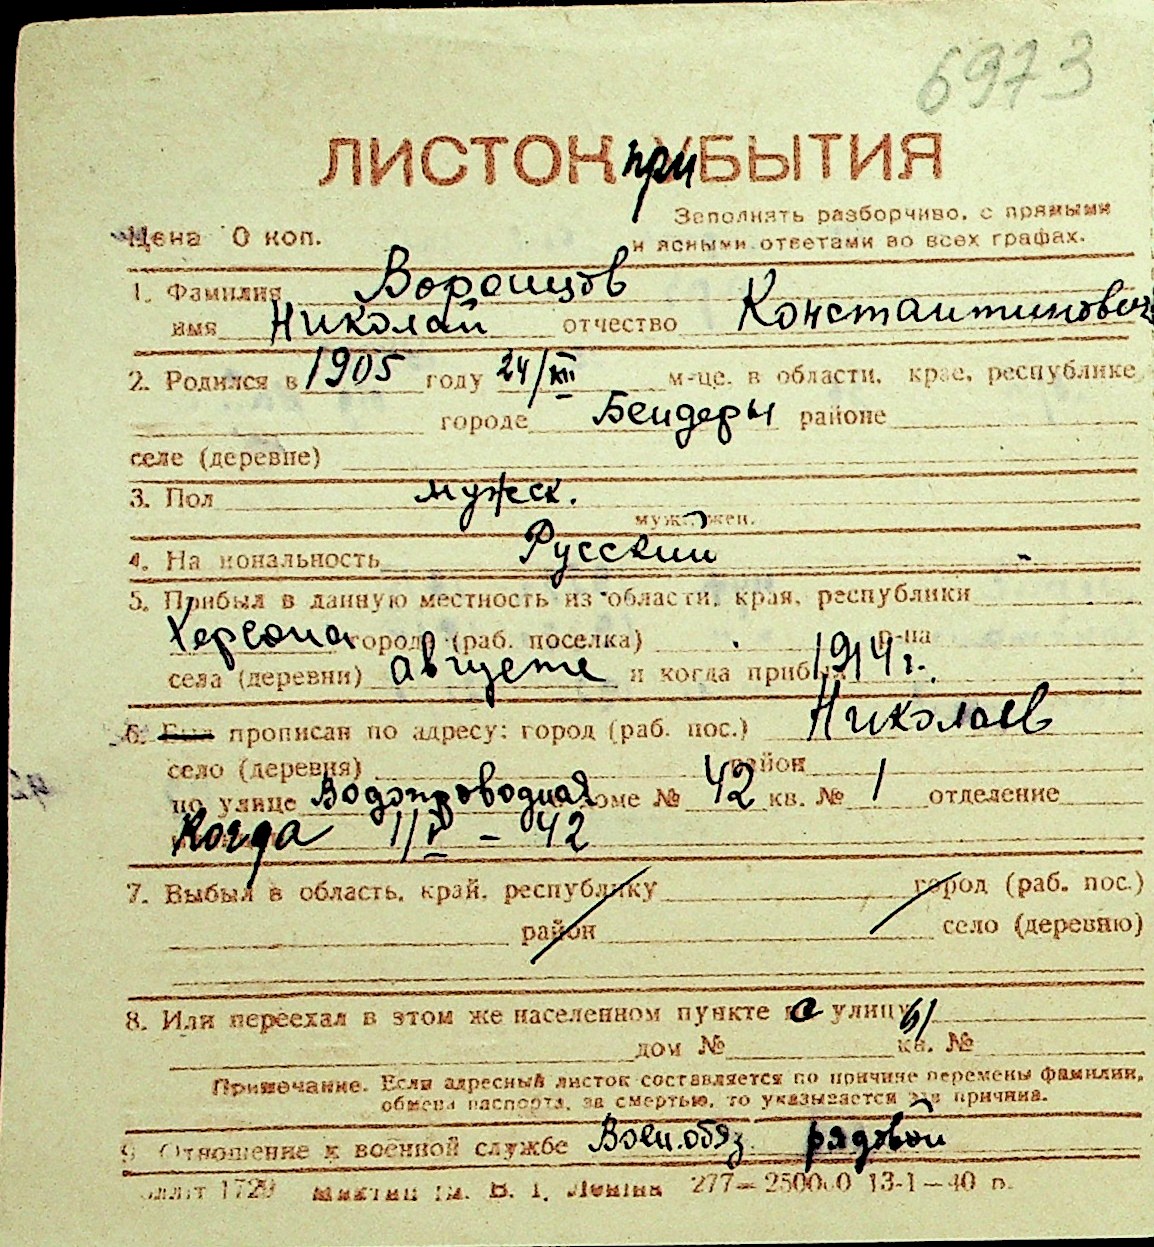 6973
ЛИСТОК прибытия
Заполнять разборчиво, с прямыми
Цена 0 коп. и ясными ответами во всех графах.
1. Фамилия Воронцов
имя Николай отчество Константинович
2. Родился в 1905 году 24/XII м-це, в области, крае, республике
городе Бендеры районе
селе (деревне)
3. Пол мужск.
муж., жен.
4. Национальность Русский
5. Прибыл в данную местность из области, края, республики
Херсона города (раб. поселка) р-на
села (деревни) августе и когда прибыл 1914 г.
6. Был прописан по адресу: город (раб. пос.) Николаев
село (деревня) район
по улице Водопроводная доме № 42 кв. № 1 отделение
Когда 1/V - 42
7. Выбыл в область, край, республику город (раб. пос.)
район село (деревню)
8. Или переехал в этом же населенном пункте с улицы
дом № кв. №
Примечание. Если адресный листок составляется по причине перемены фамилии,
обмена паспорта, за смертью, то указывается эта причина.
9. Отношение к военной службе Воен. обяз. рядовой
1729 им. В. И. Ленина 277— 250000 13-1—40 г.